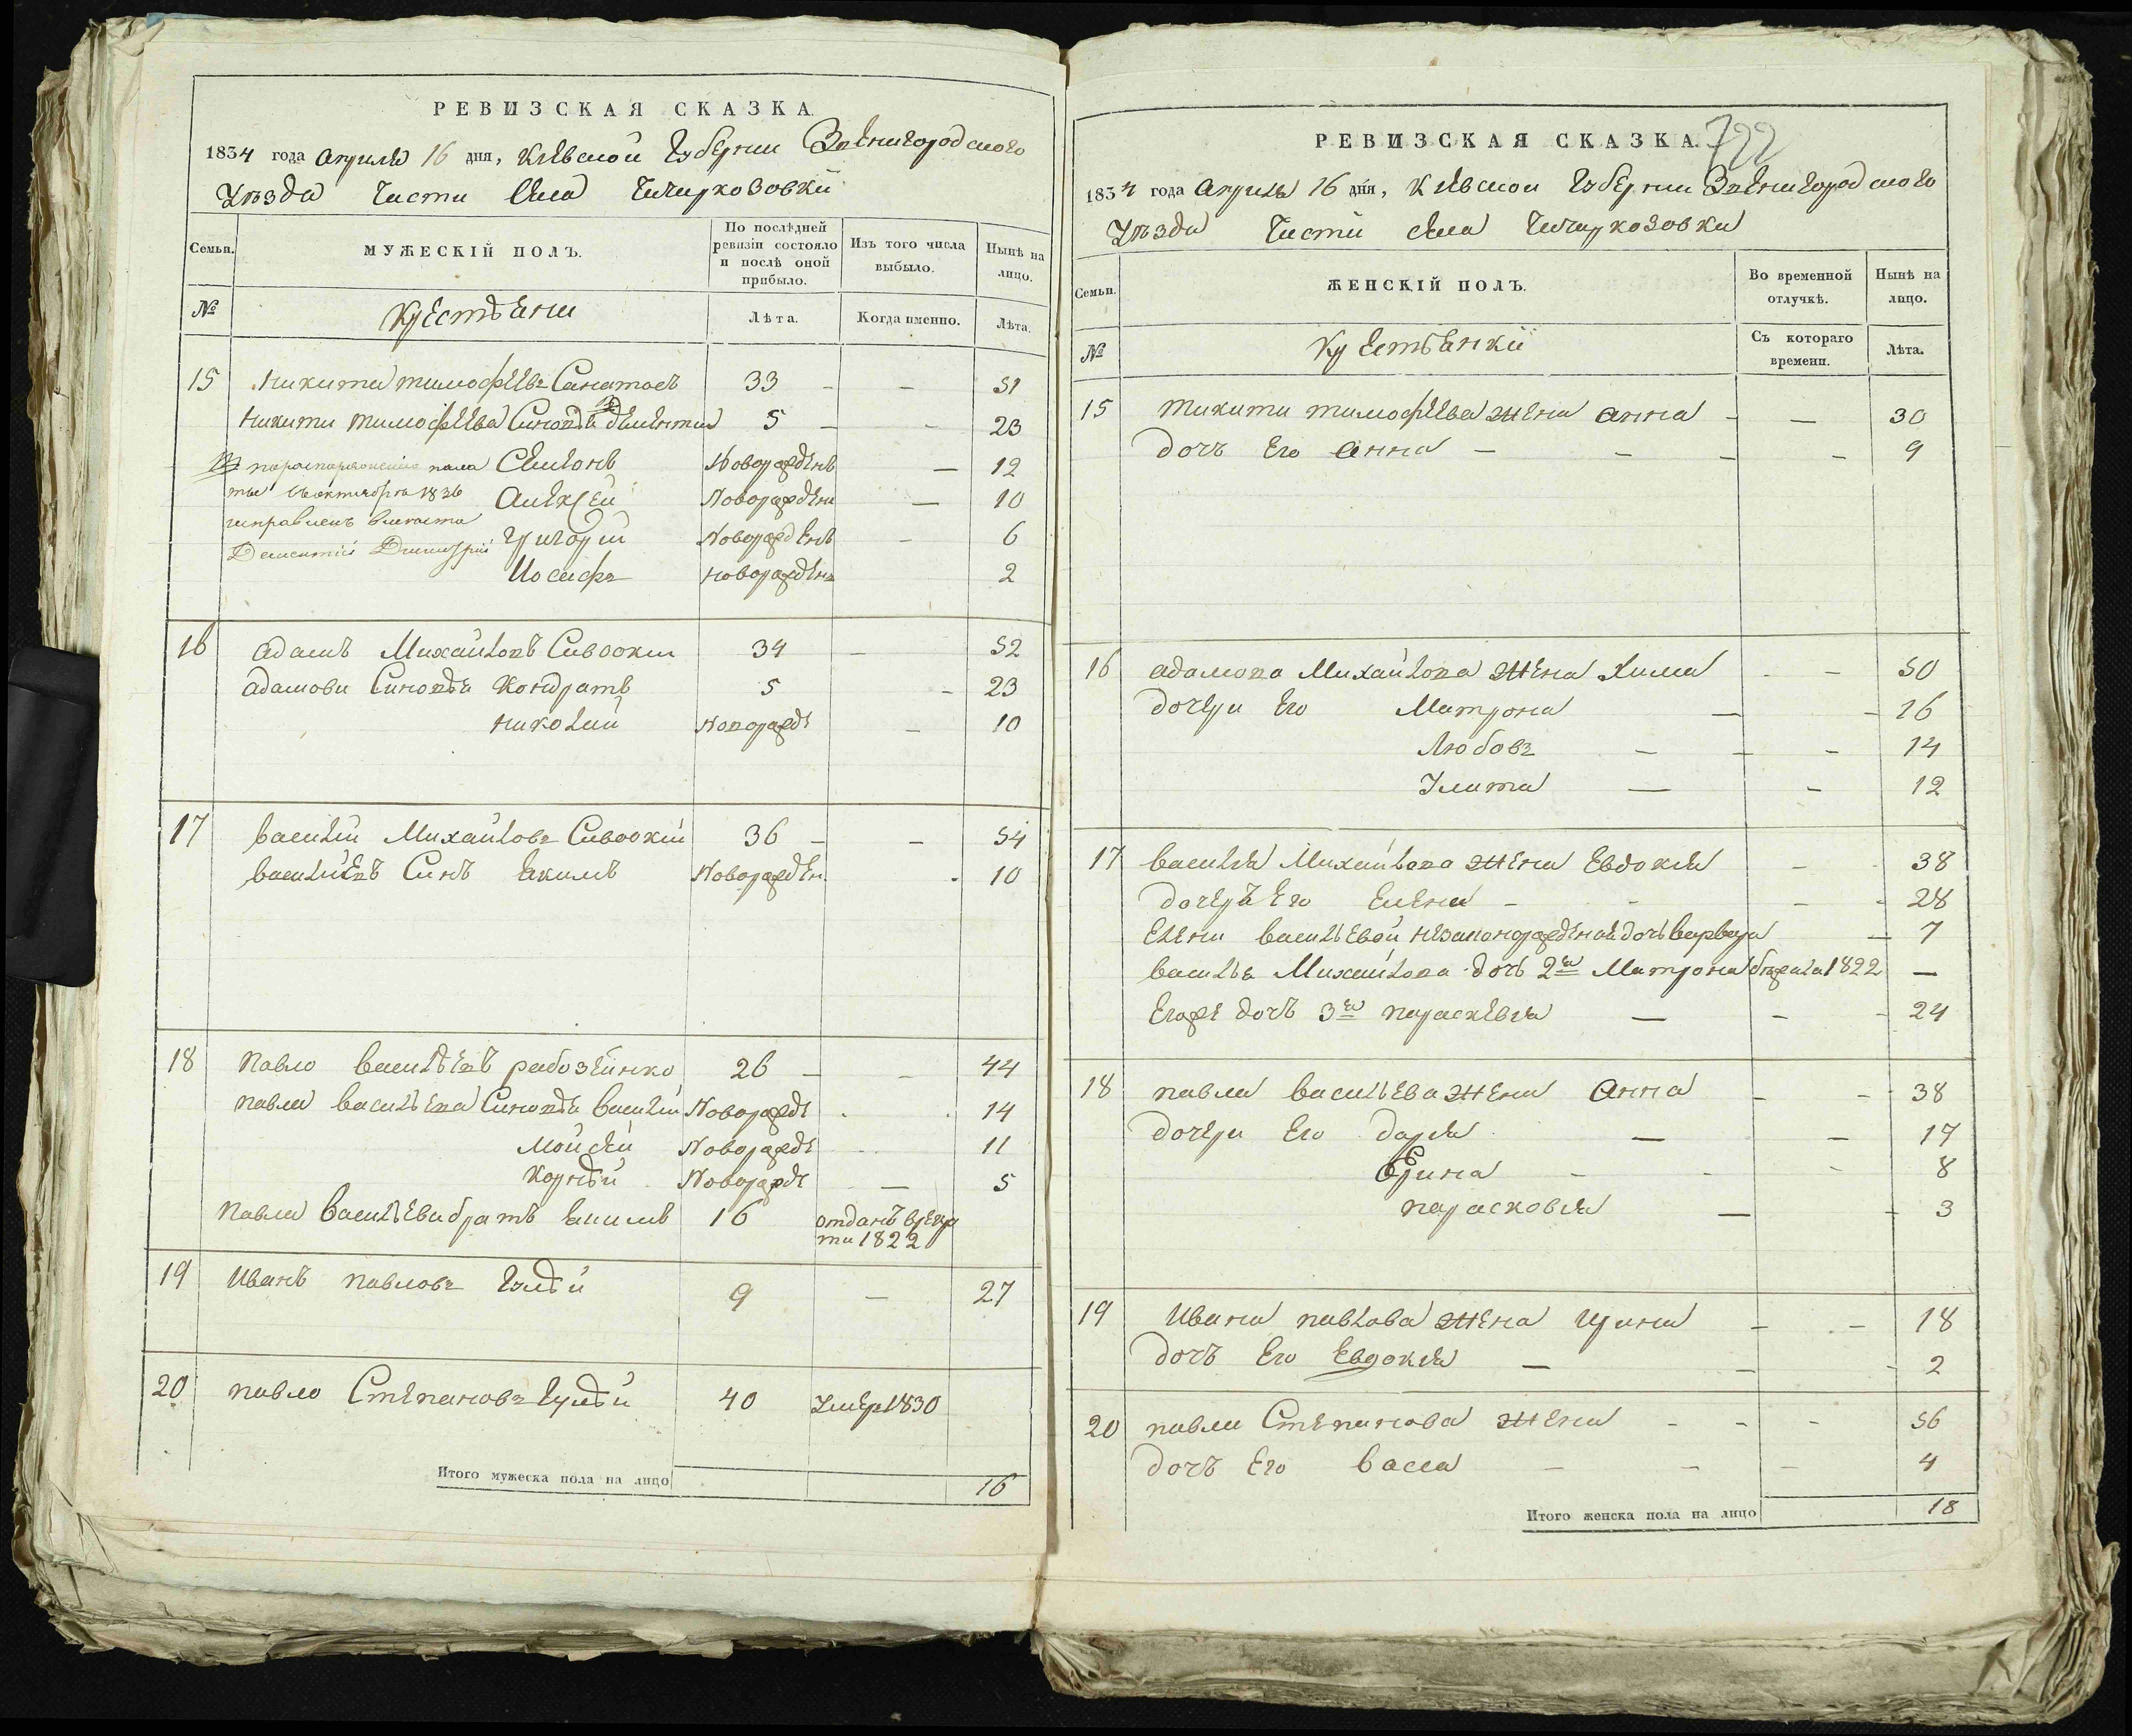 РЕВИЗСКАЯ СКАЗКА.
1834 года Апреля 16 дня, Киевской Губернии Звенигородского
Уезда Части Села Чичирковки
Семьи.
МУЖЕСКІЙ ПОЛЪ.
По послѣдней ревизіи состояло и послѣ оной прибыло.
Изъ того числа выбыло.
Нынѣ на лицо.
№
Крестьяни
Лѣта.
Когда именно.
Лѣта.
15 Никита тимофеевъ 33 – – 51
Никити тимофеева Синовья Дементий 5 – – 23
Семионъ Новорожденъ – 12
Алексей Новорожден – 10
Григорій Новорожденъ – 6
Иосифъ новорожденъ 2
исправленъ
Дементій Дмитрій
16 Адамъ Михайловъ Сивоокий 34 – 52
Адамови Синовья Кондратъ 5 – 23
Николай Новорожде – 10
17 Василий Михайловъ Сивоокій 36 – – 54
Василиевъ Синъ Екимъ Новорожден. 10
18 Павло Васильевъ рабозейнко 26 – – 44
Павла Васильева Синовья Василий Новорожде 14
Мойсей Новорожде 11
Корней Новорожде – 5
Павла Васильева братъ Екимъ 16 отданъ врекру
ти 1822
19 Иванъ Павловъ Гулей 9 – 27
20 Павло Степановъ Гулей 40 Умер 1830
Итого мужеска пола на лицо 16
РЕВИЗСКАЯ СКАЗКА. 722
1834 года Апреля 16 дня, Киевской Губернии Звенигородского
Уезда Части села Чичирковки
Семьи.
ЖЕНСКІЙ ПОЛЪ.
Во временной отлучкѣ.
Нынѣ на лицо.
№
Крестьянки
Съ котораго времени.
Лѣта.
15 Никити тимофеева жена анна – – 30
Дочъ Его Анна – – – – 9
16 Адамова Михайлова жена Хима – 50
Дочери Его Матрона – – 16
Любовъ – – – 14
Улита – – 12
17 Василия Михайлова жена Евдокия – 38
Дочеръ Его Елена – – – 28
Елени Васильевой незаконорожденая дочъ варвара – 7
Василья Михайлова дочъ 2я Матрона бежала 1822 –
Егоже дочъ 3я параскевия – – – 24
18 павла васильева жена Анна – – 38
Дочери Его дария – – 17
Ерина – – – 8
парасковия – – 3
19 Ивана павлова жена Ирина – – 18
Дочъ Его Евдокия – – – 2
20 павла Степанова жена – – – 56
Дочъ Его васса – – – 4
Итого женска пола на лицо 18